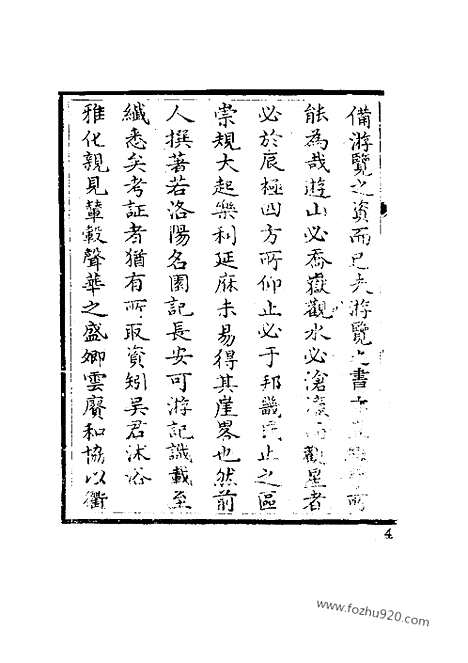 備游覽之資而已夫游覽之書
能為哉遊山必喬嶽觀水必滄瀛而觀星者
必於辰極四方所仰止必于邦畿民止之區
崇規大起樂利延庥未易得其崖畧也然前
人撰著若洛陽名園記長安可游記識載至
纖悉矣考証者猶有所取資矧吳君沐浴
雅化親見輦轂聲華之盛卿雲賡和協以衢
4
www.fozhu920.com